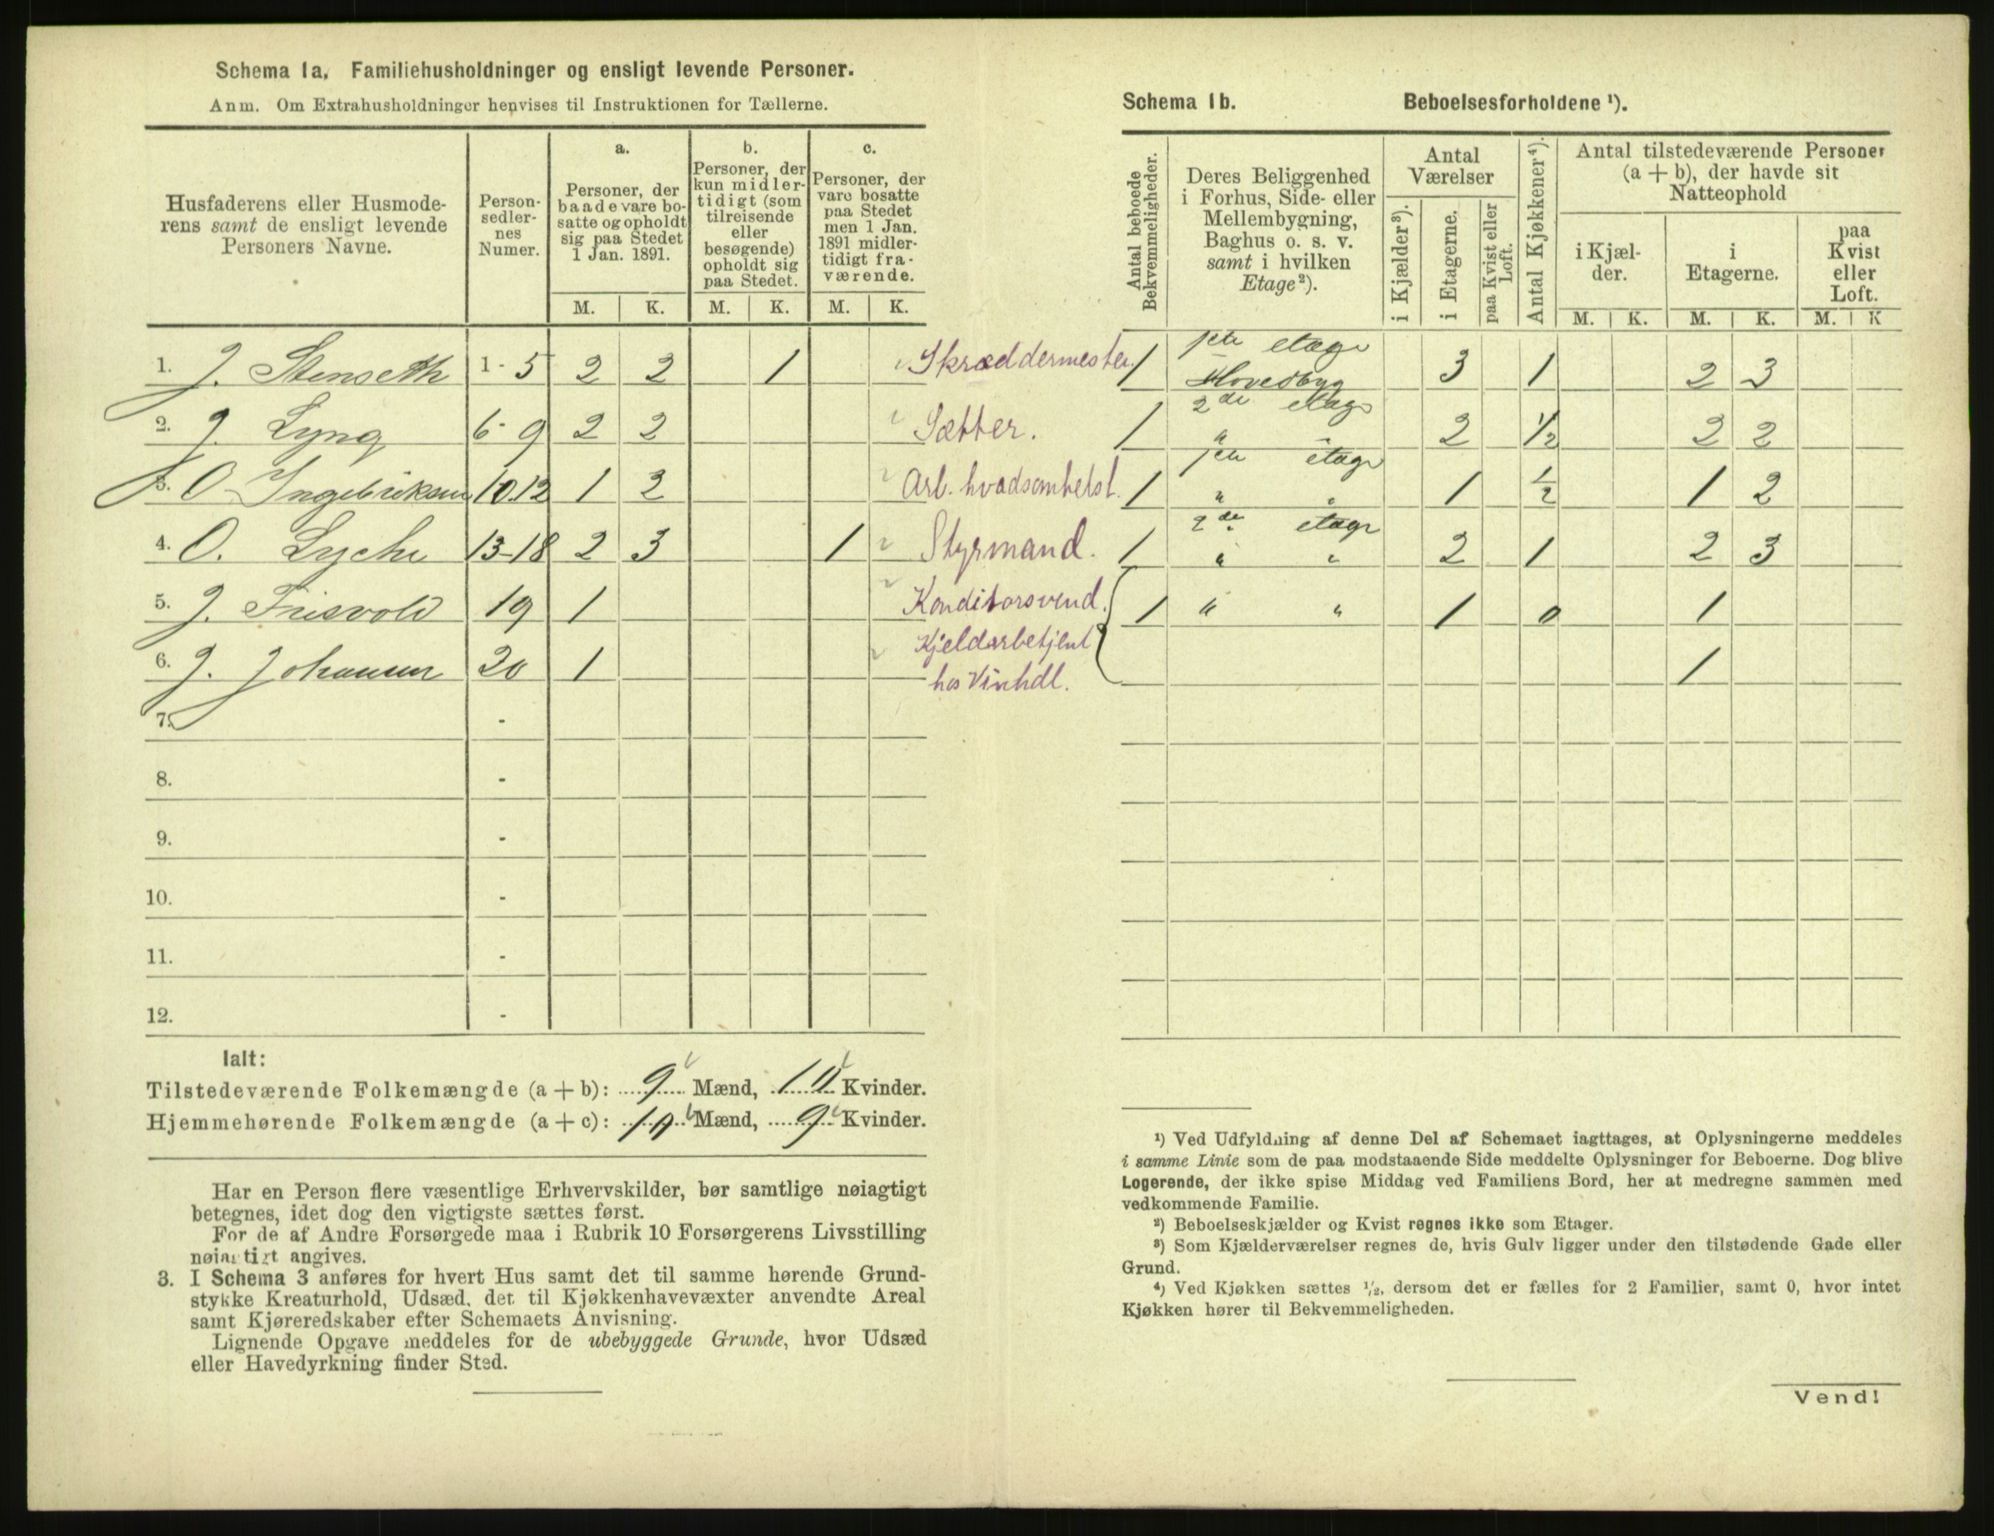 Schema 1a. Familiehusholdninger og ensligt levende Personer.
Anm. Om Extrahusholdninger henvises til Instruktionen for Tællerne.
Husfaderens eller Husmode-
rens samt de ensligt levende
Personers Navne.
Person-
sedler-
nes
Numer.
a.
Personer, der
baade vare bo-
satte og opholdt
sig paa Stedet
1 Jan. 1891.
b.
Personer, der
kun midler-
tidigt (som
tilreisende
eller
besøgende)
opholdt sig
paa Stedet.
c.
Personer, der
vare bosatte
paa Stedet
men 1 Jan.
1891 midler-
tidigt fra-
værende.
M. K. M. K. M. K.
1. J. Stenseth 1-5 2 2 1 Skræddermester
2. J. Lyng 6-9 2 2 Sætter.
3. O Ingebriksen 10.12 1 2 Arb. hvadsomhelst.
4. O. Lyche 13-18 2 3 1 Styrmand.
5. J. Friisvold 19 1 Konditorsvend.
6. J. Johansen 20 1 Kjeldarbetjent
hos Vinhdl.
7. -
8. -
9. -
10. -
11. -
12. -
Ialt:
Tilstedeværende Folkemængde (a + b): 9 Mænd, 11 Kvinder.
Hjemmehørende Folkemængde (a + c): 10 Mænd, 9 Kvinder.
Har en Person flere væsentlige Erhvervskilder, bør samtlige nøiagtigt
betegnes, idet dog den vigtigste sættes først.
For de af Andre Forsørgede maa i Rubrik 10 Forsørgerens Livsstilling
nøiagtigt angives.
3. I Schema 3 anføres for hvert Hus samt det til samme hørende Grund-
stykke Kreaturhold, Udsæd, det til Kjøkkenhavevæxter anvendte Areal
samt Kjøreredskaber efter Schemaets Anvisning.
Lignende Opgave meddeles for de ubebyggede Grunde, hvor Udsæd
eller Havedyrkning finder Sted.
Schema 1b. Beboelsesforholdene ¹).
Antal beboede
Bekvemmeligheder.
Deres Beliggenhed
i Forhus, Side- eller
Mellembygning,
Baghus o. s. v.
samt i hvilken
Etage²).
Antal
Værelser
i Kjælder³).
i Etagerne.
paa Kvist eller
Loft.
Antal Kjøkkener⁴).
Antal tilstedeværende Personer
(a + b), der havde sit
Natteophold
i Kjæl-
der.
i
Etagerne.
paa
Kvist
eller
Loft.
M. K. M. K. M. K
1ste etage
1 Hovedbyg 3 1 2 3
2de etage
1 " " 2 1/2 2 2
1ste etage
1 " " 1 1/2 1 2
2de etage
1 " " 2 1 2 3
1 " " 1 0 1
1
¹) Ved Udfyldning af denne Del af Schemaet iagttages, at Oplysningerne meddeles
i samme Linie som de paa modstaaende Side meddelte Oplysninger for Beboerne. Dog blive
Logerende, der ikke spise Middag ved Familiens Bord, her at medregne sammen med
vedkommende Familie.
²) Beboelseskjælder og Kvist regnes ikke som Etager.
³) Som Kjælderværelser regnes de, hvis Gulv ligger under den tilstødende Gade eller
Grund.
⁴) Ved Kjøkken sættes ½, dersom det er fælles for 2 Familier, samt 0, hvor intet
Kjøkken hører til Bekvemmeligheden.
Vend!